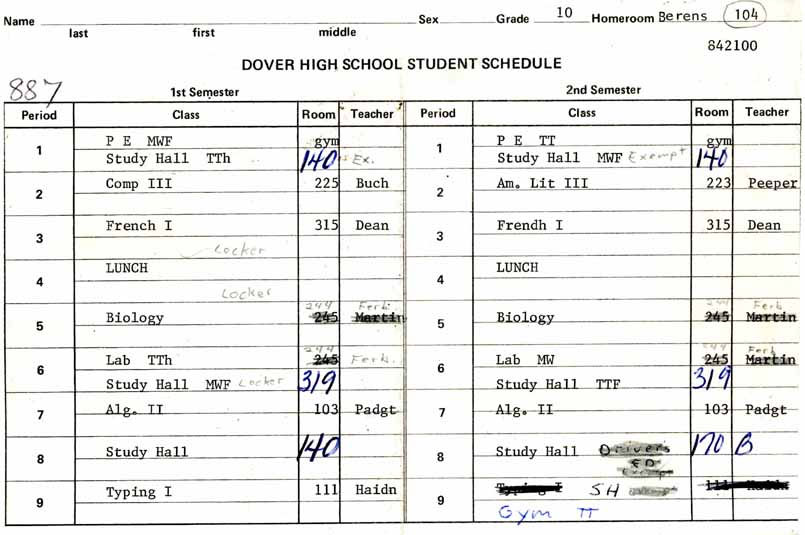 Name Sex Grade 10 Homeroom Berens 104
last first middle
842100
DOVER HIGH SCHOOL STUDENT SCHEDULE
887
1st Semester 2nd Semester
Period Class Room Teacher Period Class Room Teacher
1 P E MWF gym 1 P E TT gym
Study Hall TTh 140 Ex. Study Hall MWF Exempt 140
2 Comp III 225 Buch 2 Am. Lit III 223 Peeper
3 French I 315 Dean 3 Frendh I 315 Dean
Locker
4 LUNCH 4 LUNCH
Locker
244 Ferb. 244 Ferb
5 Biology 245 Martin 5 Biology 245 Martin
244 244 Ferb
6 Lab TTh 245 Ferb. 6 Lab MW 245 Martin
Study Hall MWF Locker 319 Study Hall TTF 319
7 Alg. II 103 Padgt 7 Alg. II 103 Padgt
8 Study Hall 140 8 Study Hall Drivers 170 B
ED
Exempt
9 Typing I 111 Haidn 9 Typing I SH 111 Haidn
Gym TT